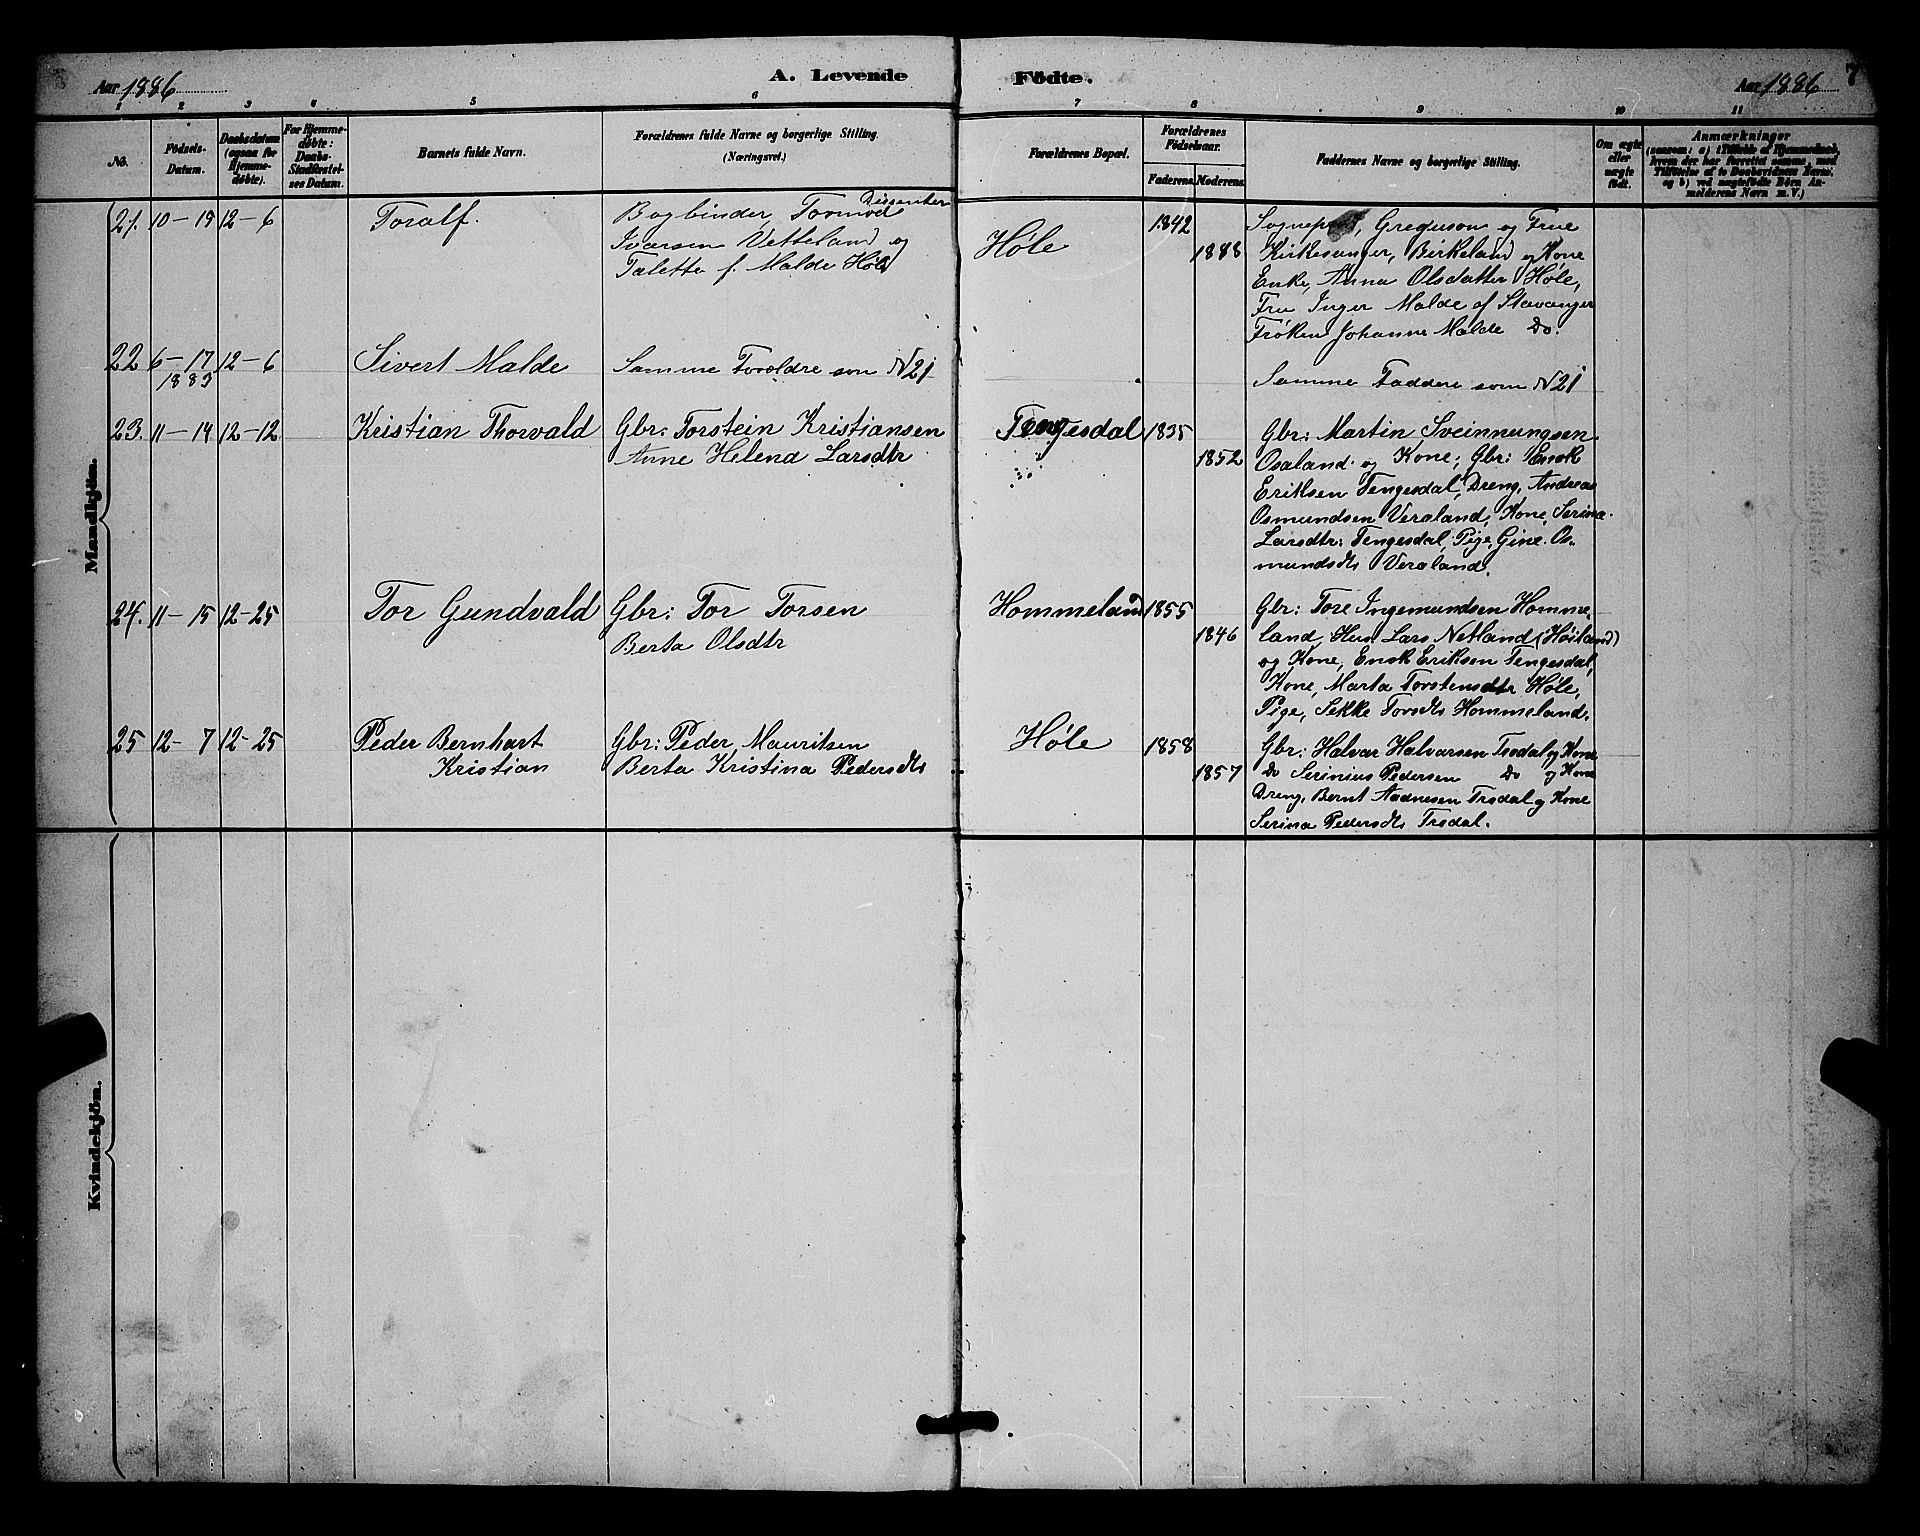 Aar 1886
A. Levende Födte.
Aar 1886
7
1 2 3 4 5 6 7 8 9 10 11
No.
Födsels-
Datum.
Daabsdatum
(ogsaa for
Hjemme-
döbte).
For Hjemme-
döbte:
Daabs-
Stadfæstel-
ses Datum.
Barnets fulde Navn.
Forældrenes fulde Navne og borgerlige Stilling.
(Næringsvei.)
Forældrenes Bopæl.
Forældrenes
Födselsaar.
Faderens. Moderens.
Faddernes Navne og borgerlige Stilling.
Om ægte
eller
uægte
födt.
Anmærkninger
(saasom: a) i Tilfælde af Hjemmedaab,
hvem der har forrettet samme, med
Tilföielse af to Daabsvidners Navne,
og b) ved uægtefödte Börn An-
melderens Navn m. V.)
Mandkjön.
21. 10-19 12-6 Toralf. Bogbinder, Tormod Dissenter
Iversen Vetteland og
Talette f. Malde Høle
Høle 1842
1848
Greguson og Frue
Kirkesanger, Birkeland og Kone
Enke, Anna Olsdatter Høle,
Fru Inger Malde af Stavanger
Frøken Johanne Malde Do.
22 6-17 12-6 Sivert Malde Samme Forældre som N 21
1883
Samme Faddere som N 21
23. 11-14 12-12 Kristian Thorvald Gbr: Torstein Kristiansen
Anne Helena Larsdtr
Tengesdal 1835
1852
Gbr: Martin Sveinnungsen
Osaland og Kone, Gbr: Enok
Eriksen Tengesdal, Dreng, Andreas
Osmundsen Veraland, Kone, Serina
Larsdtr: Tengesdal, Pige, Gine Os-
mundsdtr Veraland.
24. 11-15 12-25 Tor Gundvald Gbr: Tor Torsen
Berta Olsdtr
Hommeland 1855
1846
Gbr: Tore Ingemundsen Homme-
land, Lars Netland (Høiland)
og Kone, Enok Eriksen Tengesdal,
Kone, Marta Torstensdtr Høle,
Pige, Sekke Torsdtr Hommeland.
25 12-7 12-25 Peder Bernhart
Kristian
Gbr: Peder Mauritsen
Berta Kristina Pedersdtr
Høle 1858
1857
Gbr: Halvar Halvarsen Trodal og Kone
Do Serinius Pedersen Do og Kone
Dreng, Bernt Aadnesen Trodal og Kone
Serina Pedersdtr Trodal.
Kvindekjön.